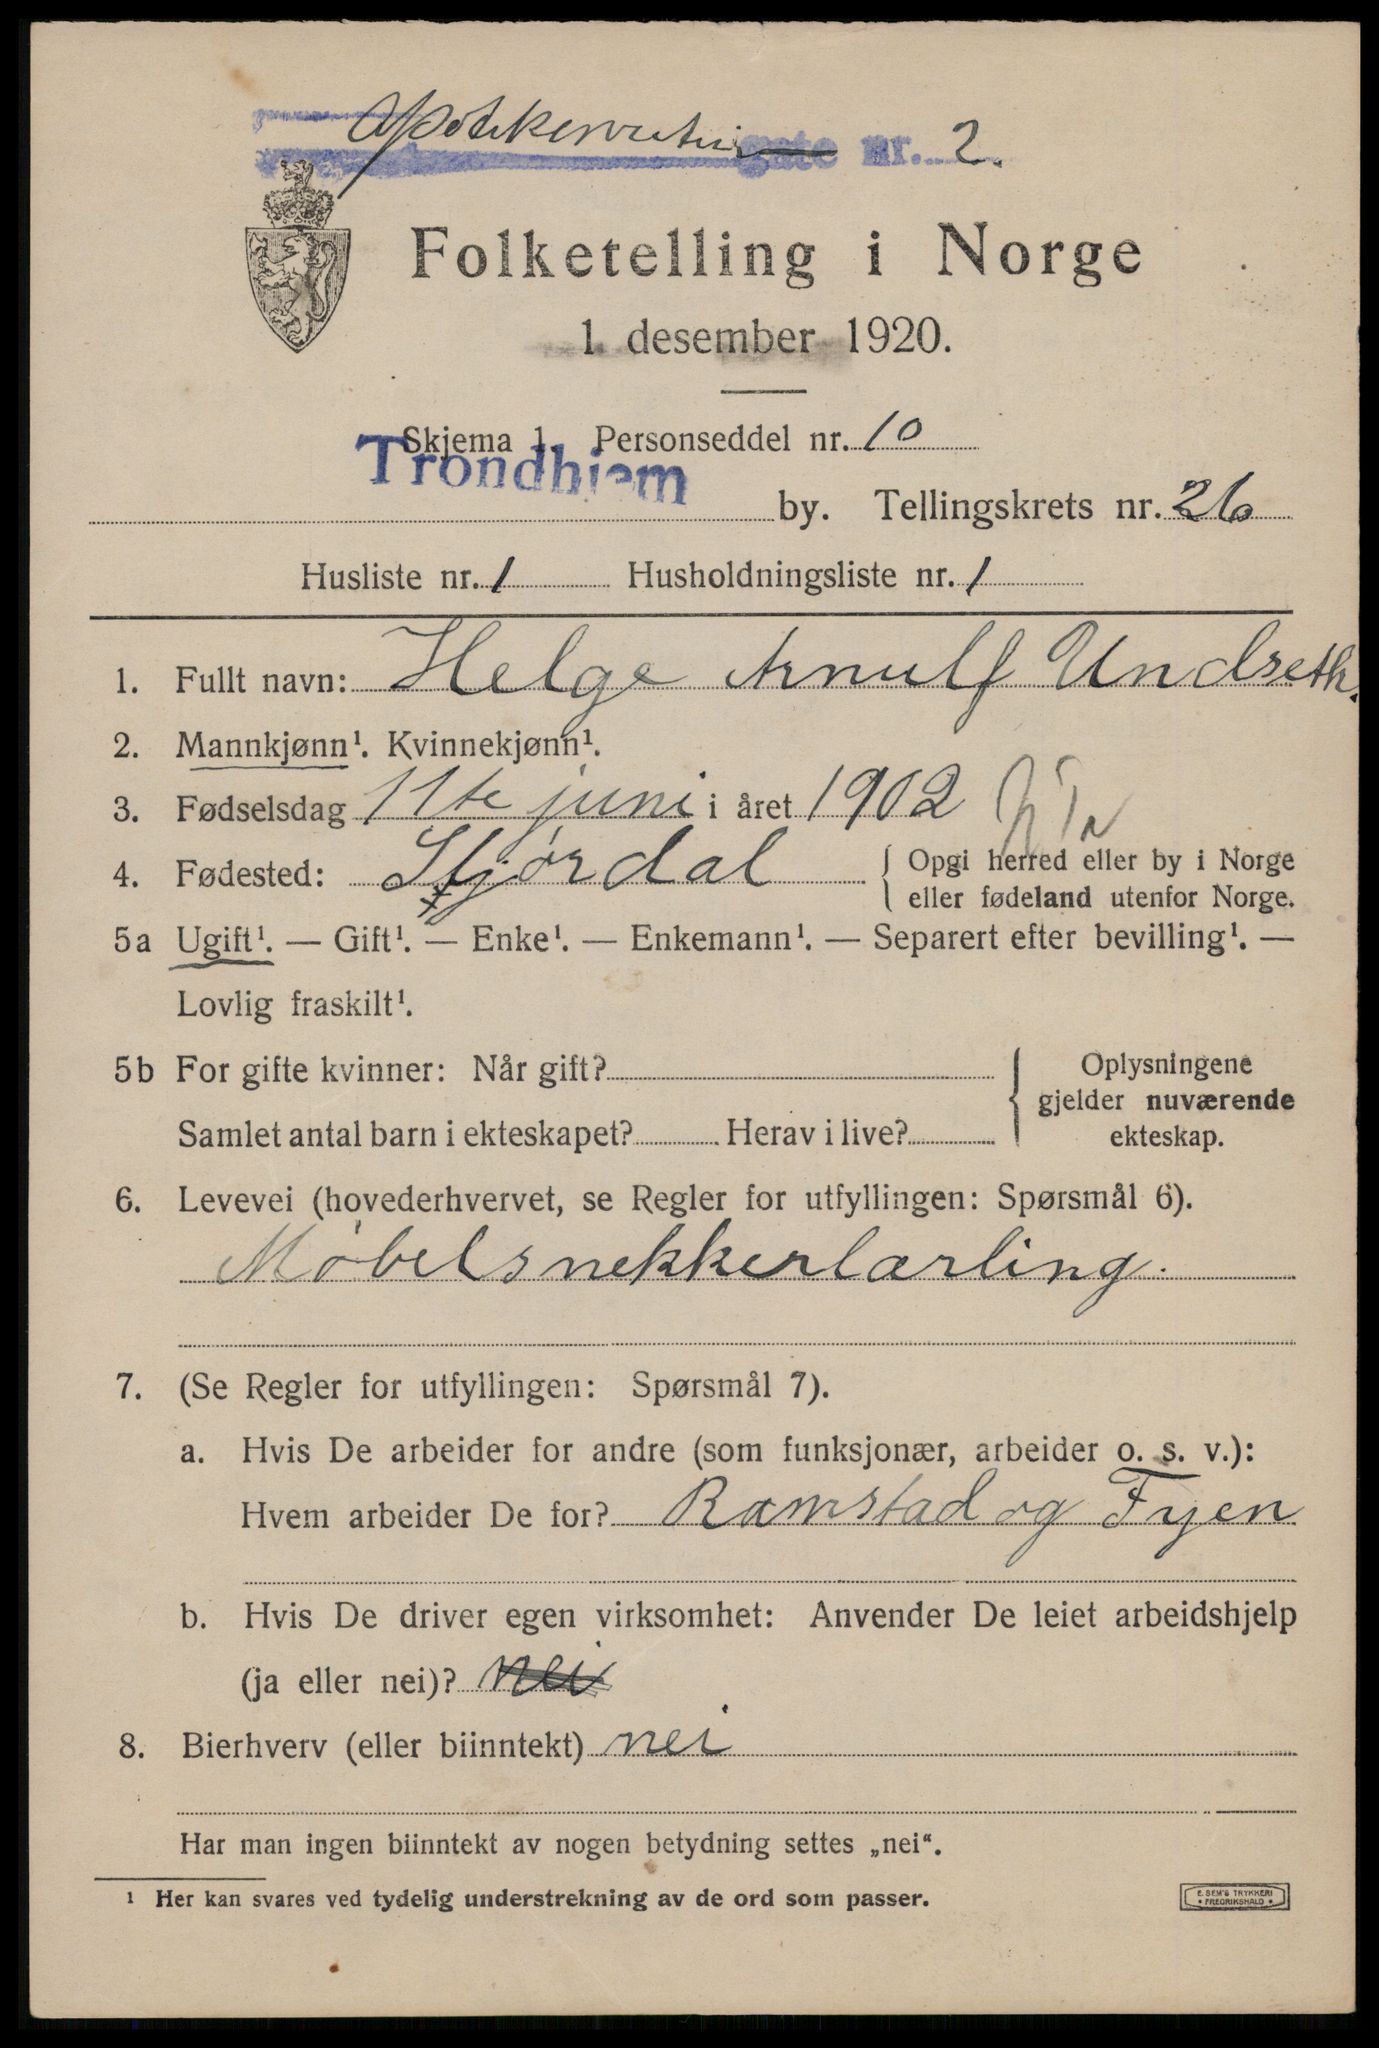 Apotekerveita gate nr. 2.
Folketelling i Norge
1. desember 1920.
Skjema 1. Personseddel nr. 10
Trondhjem by. Tellingskrets nr. 26
Husliste nr. 1 Husholdningsliste nr. 1
1. Fullt navn: Helge Arnulf Undseth.
2. Mannkjønn¹. Kvinnekjønn¹.
3. Fødselsdag 11te juni i året 1902
4. Fødested: Stjørdal { Opgi herred eller by i Norge
eller fødeland utenfor Norge.
5a Ugift¹. — Gift¹. — Enke¹. — Enkemann¹. — Separert efter bevilling¹. —
Lovlig fraskilt¹.
5b For gifte kvinner: Når gift? { Oplysningene
gjelder nuværende
Samlet antal barn i ekteskapet? Herav i live? ekteskap.
6. Levevei (hovederhvervet, se Regler for utfyllingen: Spørsmål 6).
Møbelsnekkerlærling.
7. (Se Regler for utfyllingen: Spørsmål 7).
a. Hvis De arbeider for andre (som funksjonær, arbeider o. s. v.):
Hvem arbeider De for? Ramstad og Fyen
b. Hvis De driver egen virksomhet: Anvender De leiet arbeidshjelp
(ja eller nei)? nei
8. Bierhverv (eller biinntekt) nei
Har man ingen biinntekt av nogen betydning settes „nei“.
¹ Her kan svares ved tydelig understrekning av de ord som passer.
E. SEM'S TRYKKERI
• FREDRIKSHALD •